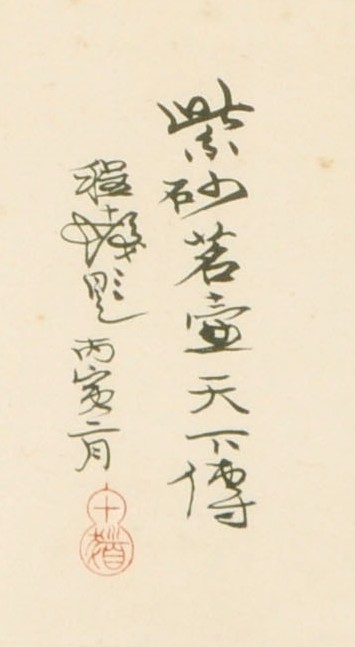 紫砂茗壺天下傳
程十髮題 丙寅二月
十髮